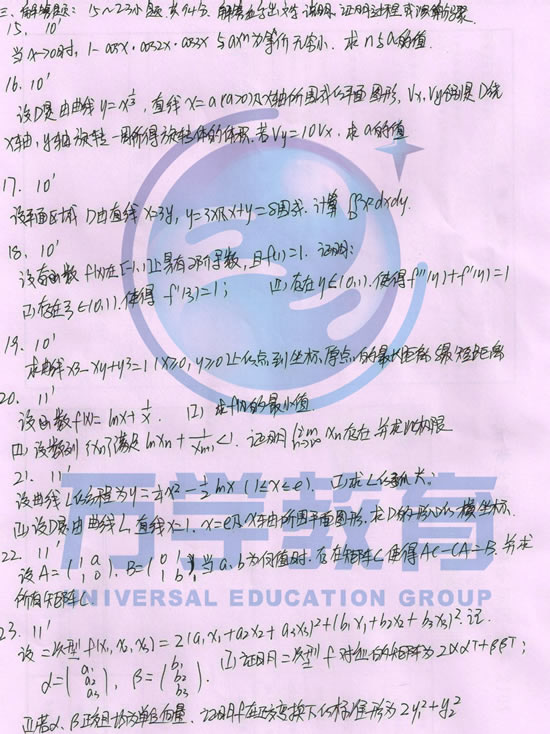 三、解答题：15～23小题，共94分.解答应写出文字说明、证明过程或演算步骤.
15. 10'
当x→0时，1-cosx·cos2x·cos3x与axⁿ为等价无穷小，求n与a的值.
16. 10'
设D是由曲线y=x^{1/3}，直线x=a(a>0)及x轴所围成的平面图形，Vx,Vy分别是D绕
x轴，y轴旋转一周所得旋转体的体积.若Vy=10Vx，求a的值
17. 10'
设平面区域D由直线x=3y，y=3x及x+y=8围成，计算∬x²dxdy.
D
18. 10'
设奇函数f(x)在[-1,1]上具有2阶导数，且f(1)=1.证明：
(I)存在ξ∈(0,1)，使得f'(ξ)=1； (II)存在η∈(0,1)，使得f''(η)+f'(η)=1
19. 10'
求曲线x3-xy+y3=1(x≥0,y≥0)上的点到坐标原点的最长距离与最短距离
20. 11'
设函数f(x)=lnx+1/x. (I)求f(x)的最小值
(II)设数列{xn}满足lnxn+1/xn+1<1.证明lim n→∞ xn存在，并求此极限
21. 11'
设曲线L的方程为y=1/4x²-1/2lnx (1≤x≤e). (I)求L的弧长.
(II)设D是由曲线L，直线x=1，x=e及x轴所围平面图形，求D的形心的横坐标.
22. 11'
设A=(1 a
1 0)，B=(0 1
1 b)，当a,b为何值时，存在矩阵C使得AC-CA=B，并求
所有矩阵C
23. 11'
设二次型f(x₁,x₂,x₃)=2(a₁x₁+a₂x₂+a₃x₃)²+(b₁x₁+b₂x₂+b₃x₃)².记
α=(a₁
a₂
a₃)，β=(b₁
b₂
b₃). (I)证明二次型f对应的矩阵为2ααᵀ+ββᵀ；
(II)若α、β正交且均为单位向量，证明f在正交变换下的标准形为2y₁²+y₂²
万学教育
UNIVERSAL EDUCATION GROUP